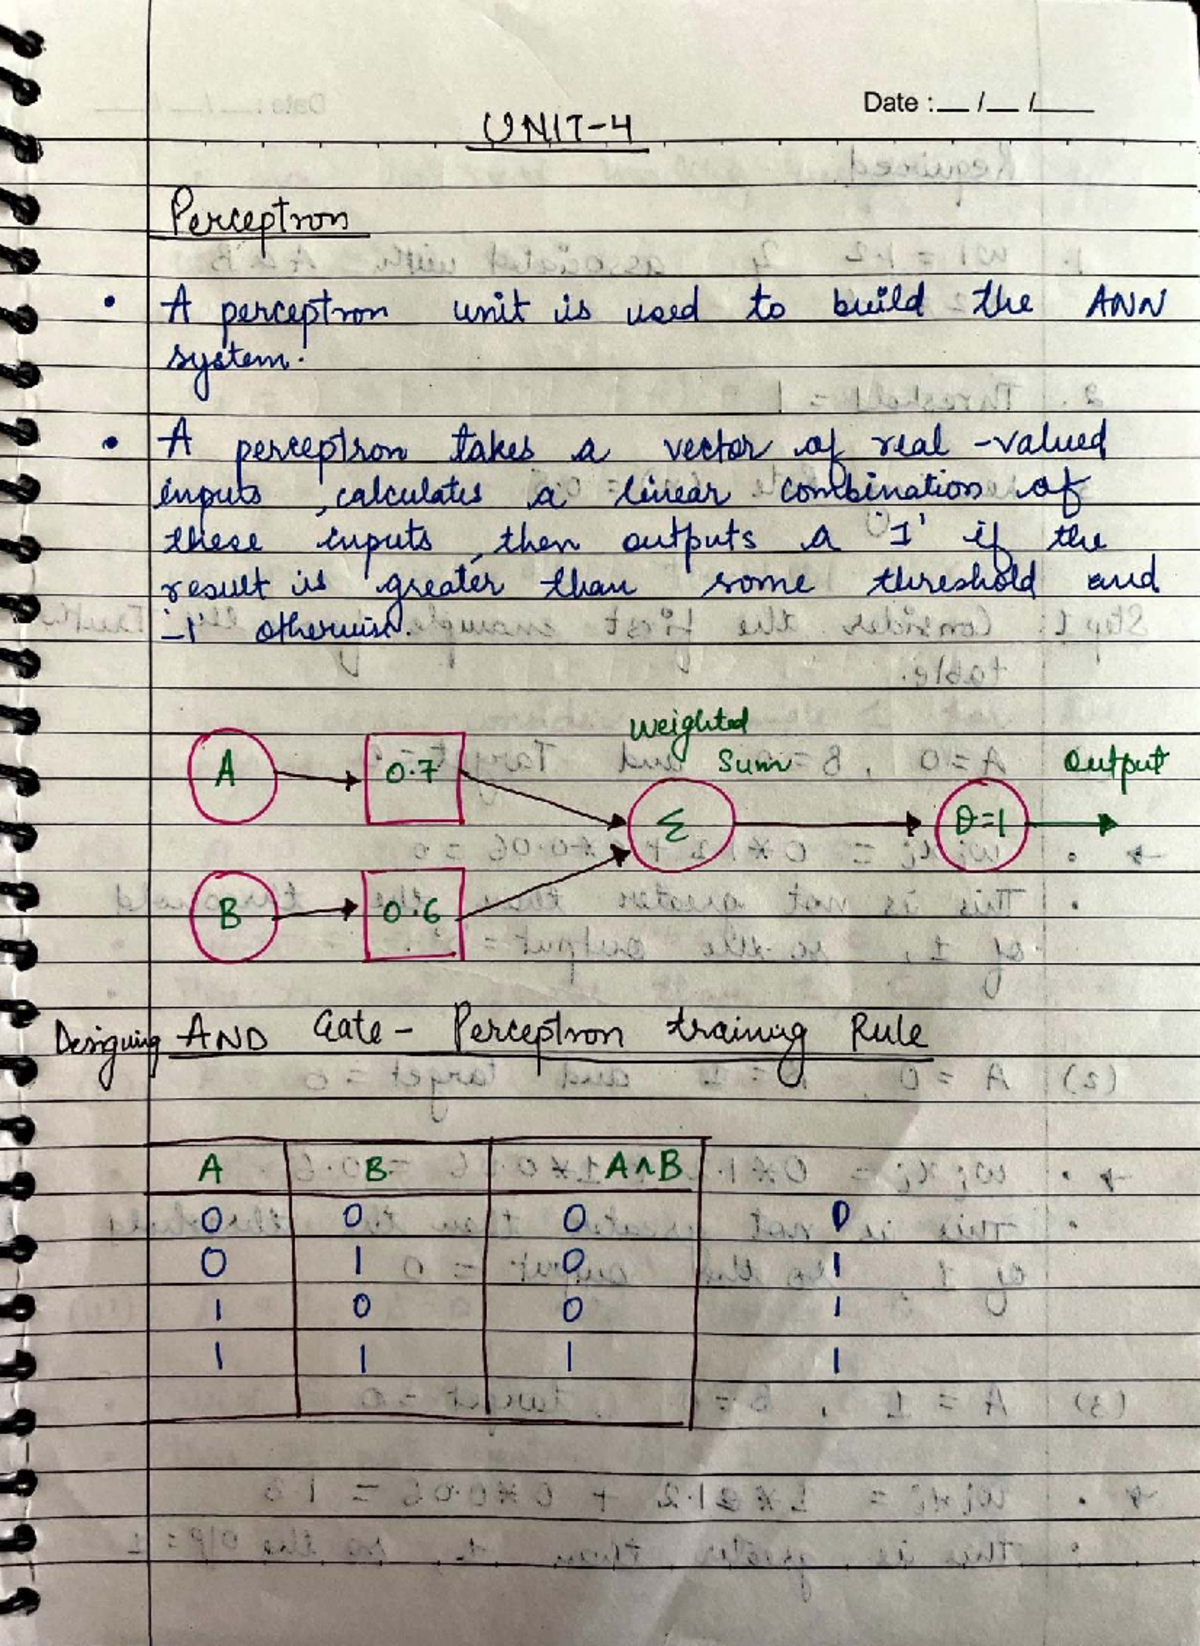 Date : __ / __ / ____
UNIT-4
Perceptron
• A perceptron unit is used to build the ANN
system.
• A perceptron takes a vector of real-valued
inputs, calculates a linear combination of
these inputs, then outputs a '1' if the
result is greater than some threshold and
'-1' otherwise.
Weighted
Sum
A 0.7 Σ θ=1 Output
B 0.6
Designing AND Gate - Perceptron training Rule
A B A∧B
0 0 0 0
0 1 0 1
1 0 0 1
1 1 1 1